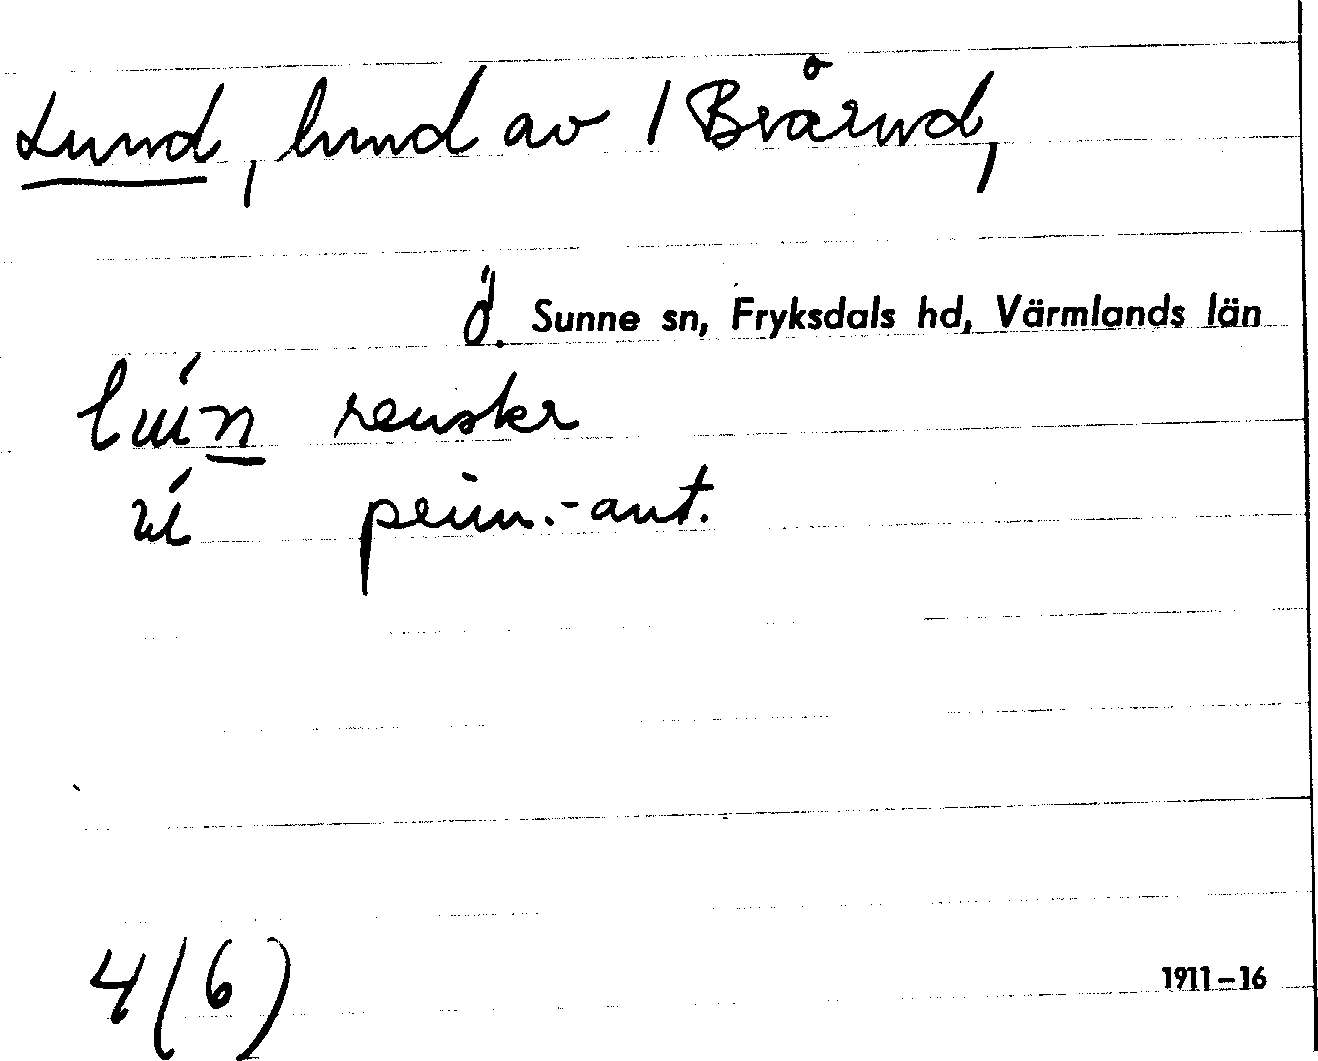 Lund, lund av 1 Bvårud,
ö. Sunne sn, Fryksdals hd, Värmlands län
renskr
penn.-ant.
4(6)
1911–16